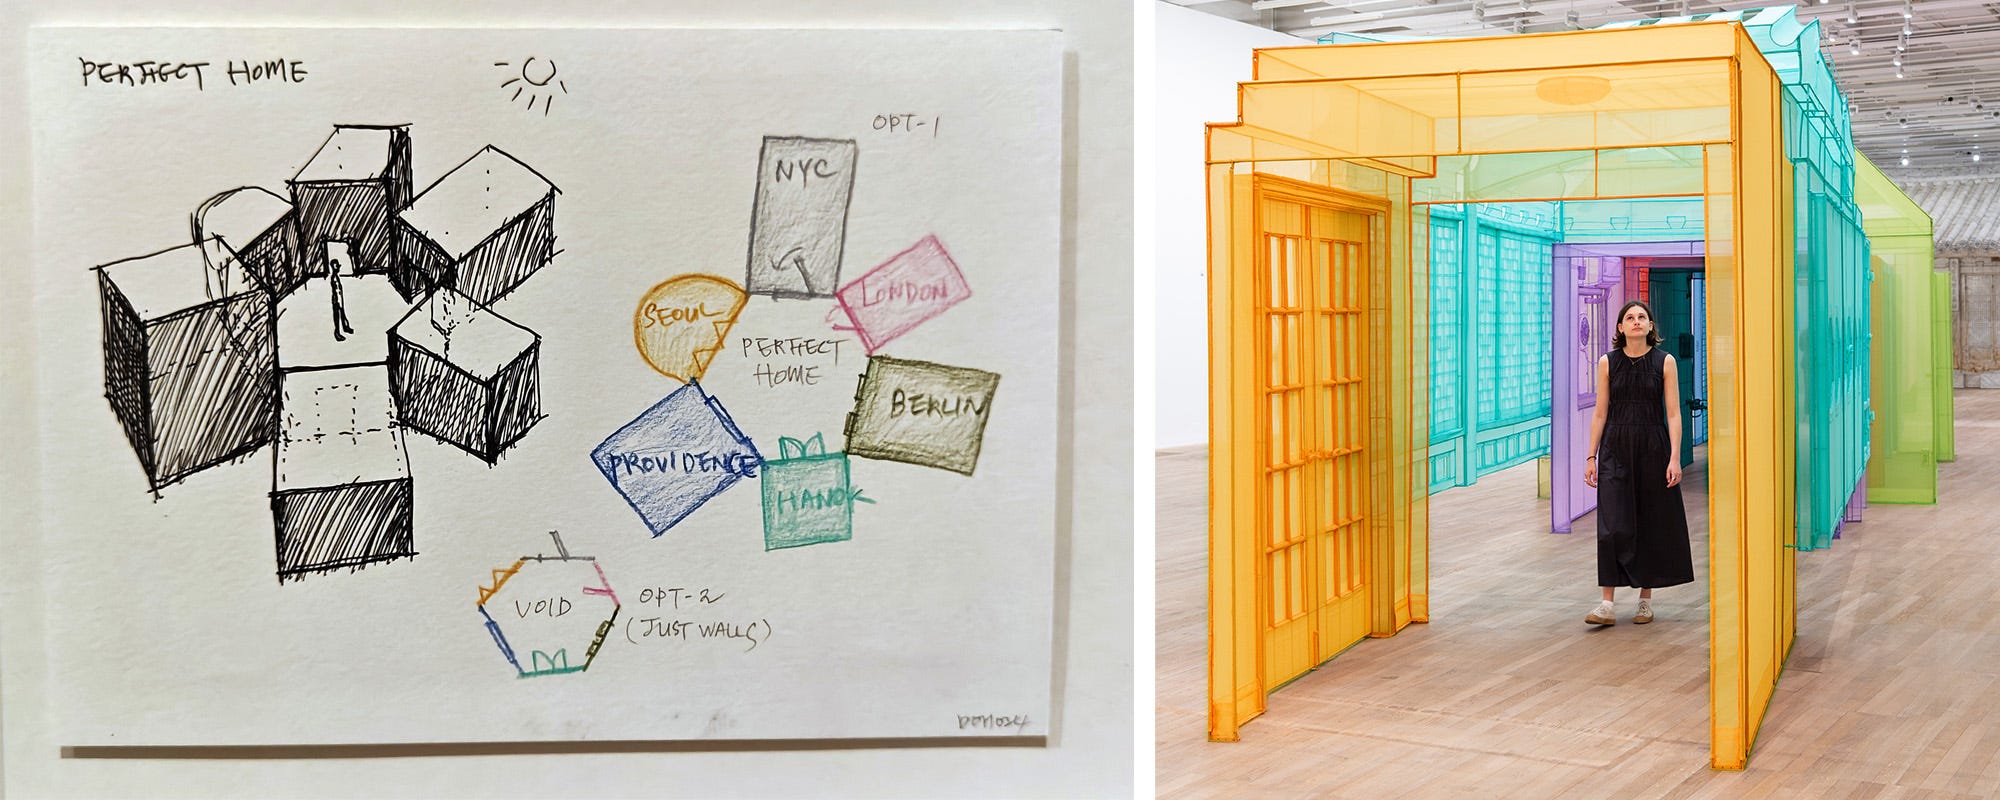 PERFECT HOME
OPT-1
NYC
LONDON
SEOUL
PERFECT
HOME
BERLIN
PROVIDENCE
HANOK
VOID
OPT-2
(JUST WALLS)